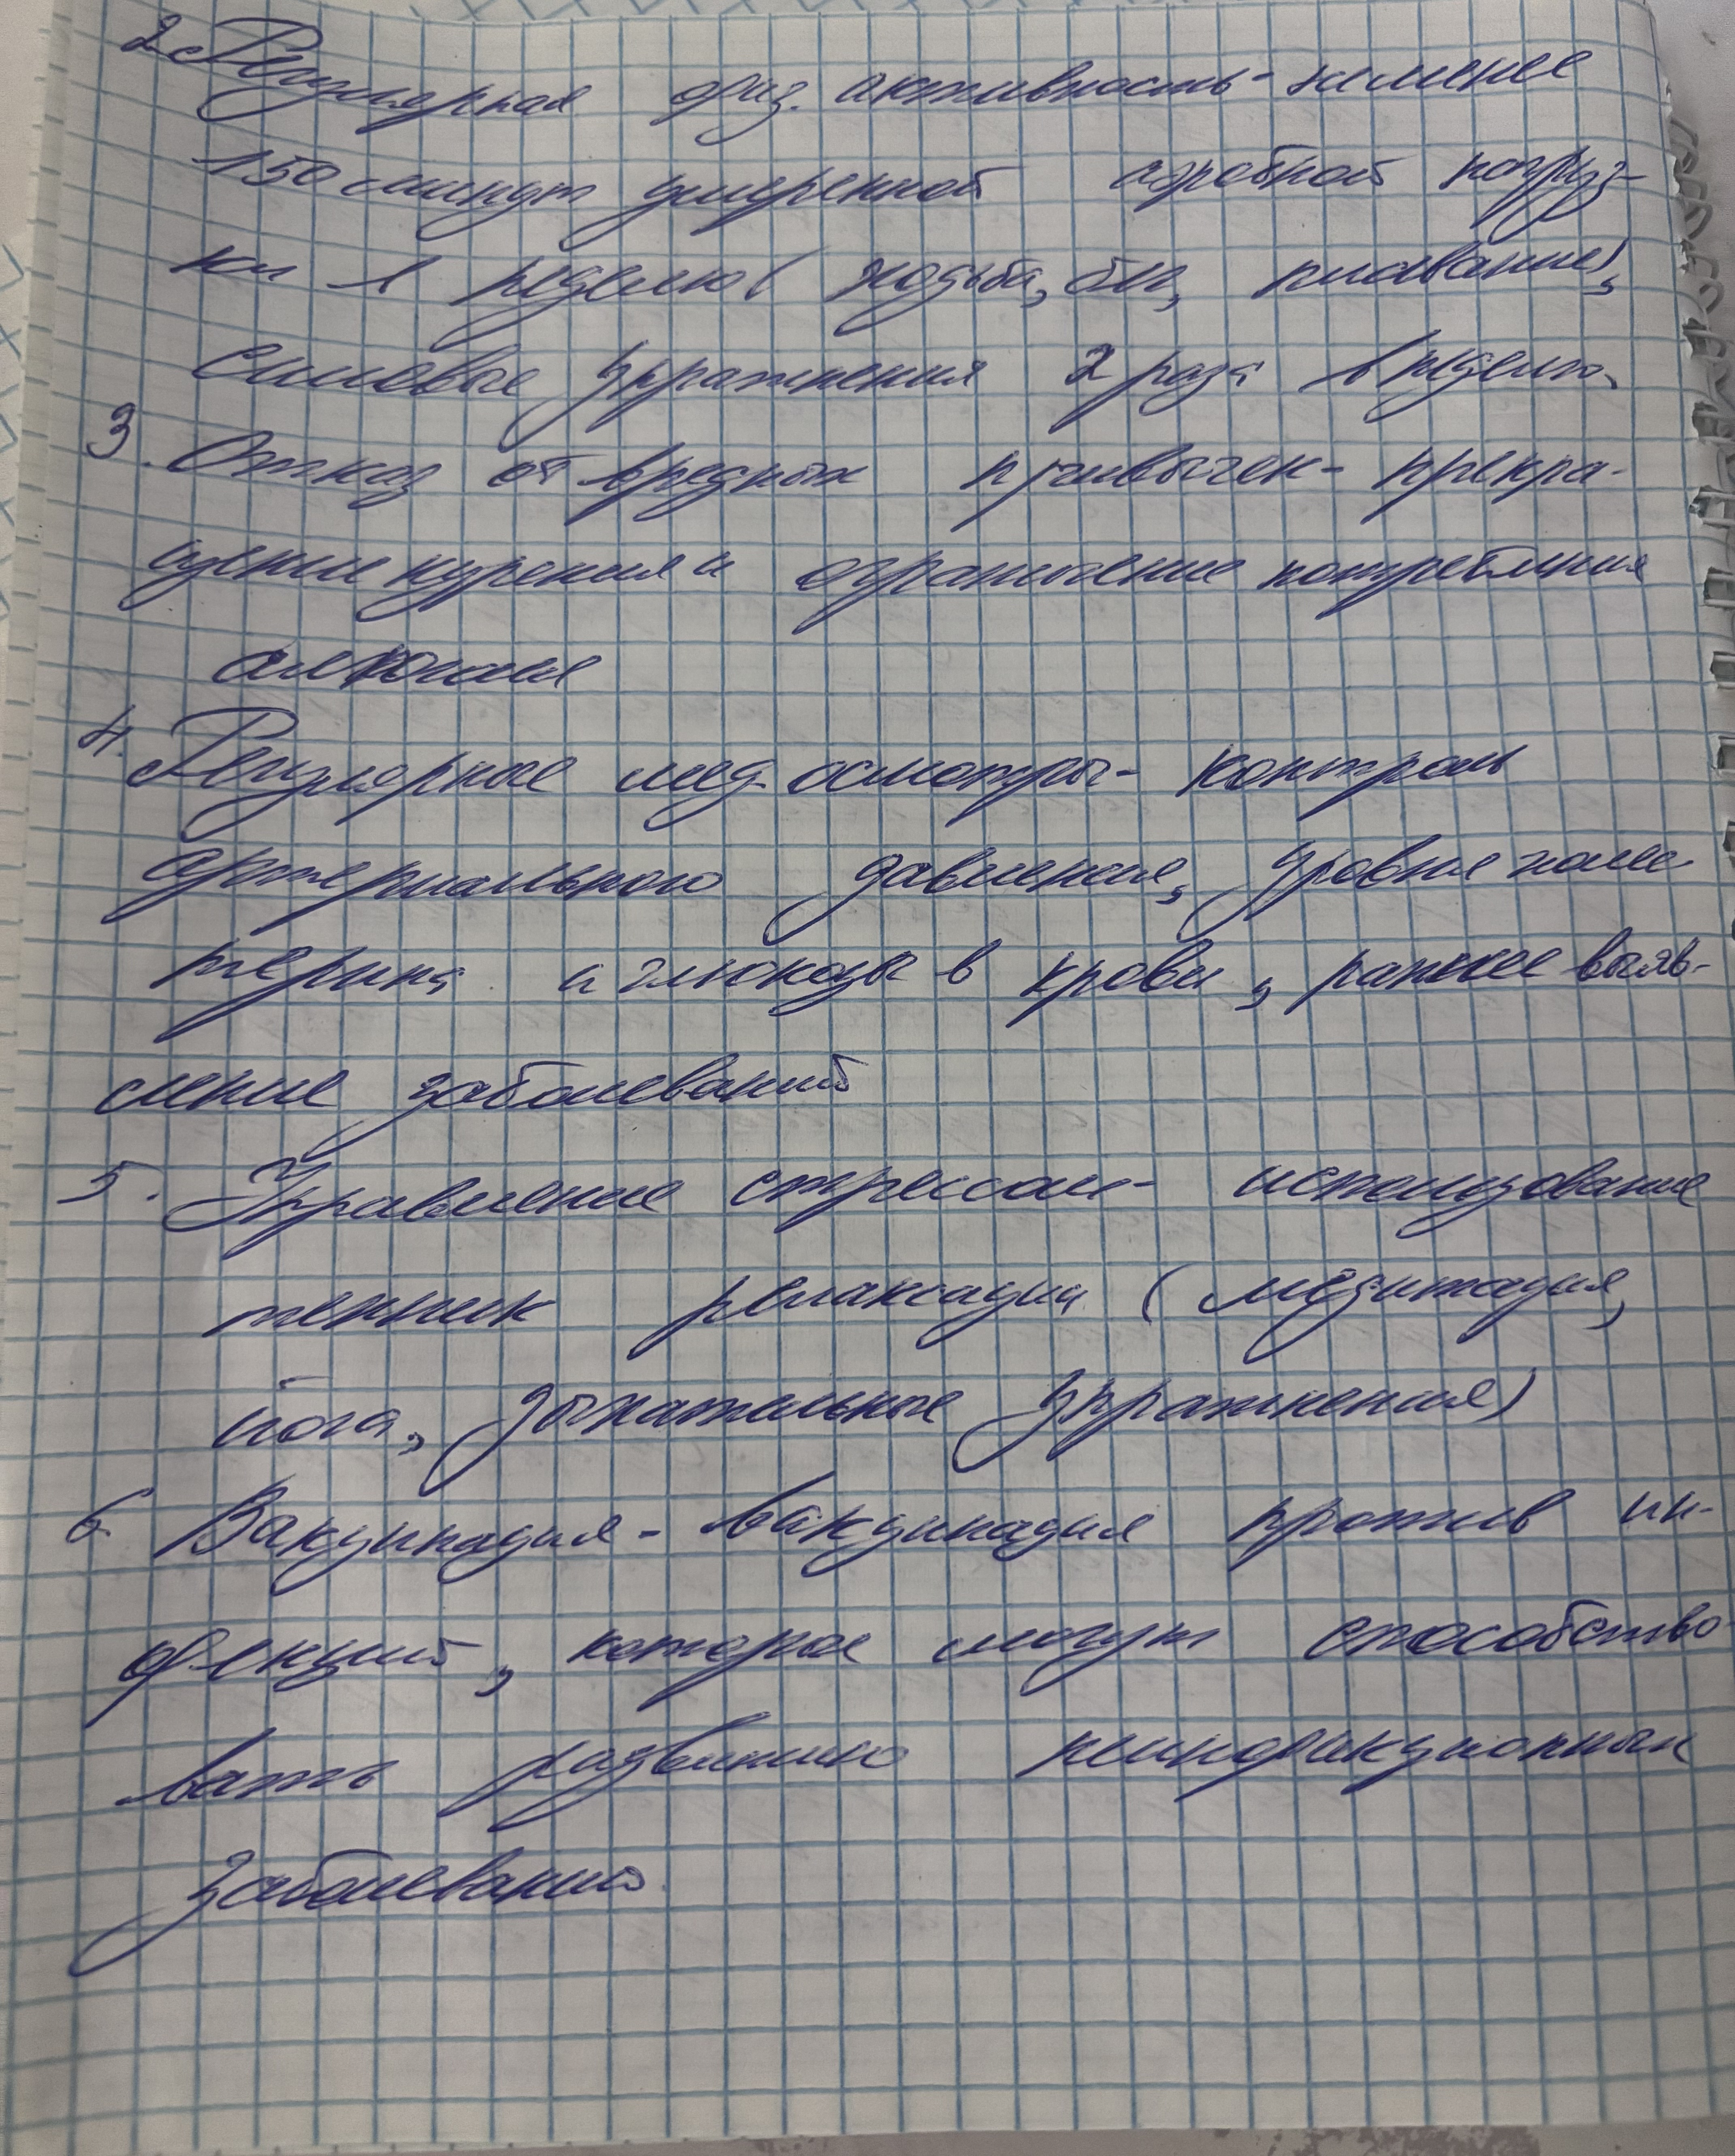 2. Регулярная физ. активность - не менее
150 минут умеренной аэробной нагруз-
ки в неделю (ходьба, бег, плавание),
силовые упражнения 2 раза в неделю.
3. Отказ от вредных привычек - прекра-
щение курения и ограничение потребления
алкоголя
4. Регулярные мед. осмотры - контроль
артериального давления, уровня холес-
терина и глюкозы в крови, раннее выяв-
ление заболеваний
5. Управление стрессом - использование
техник релаксации (медитация,
йога, дыхательные упражнения)
6. Вакцинация - вакцинация против ин-
фекций, которые могут способство-
вать развитию неинфекционных
заболеваний